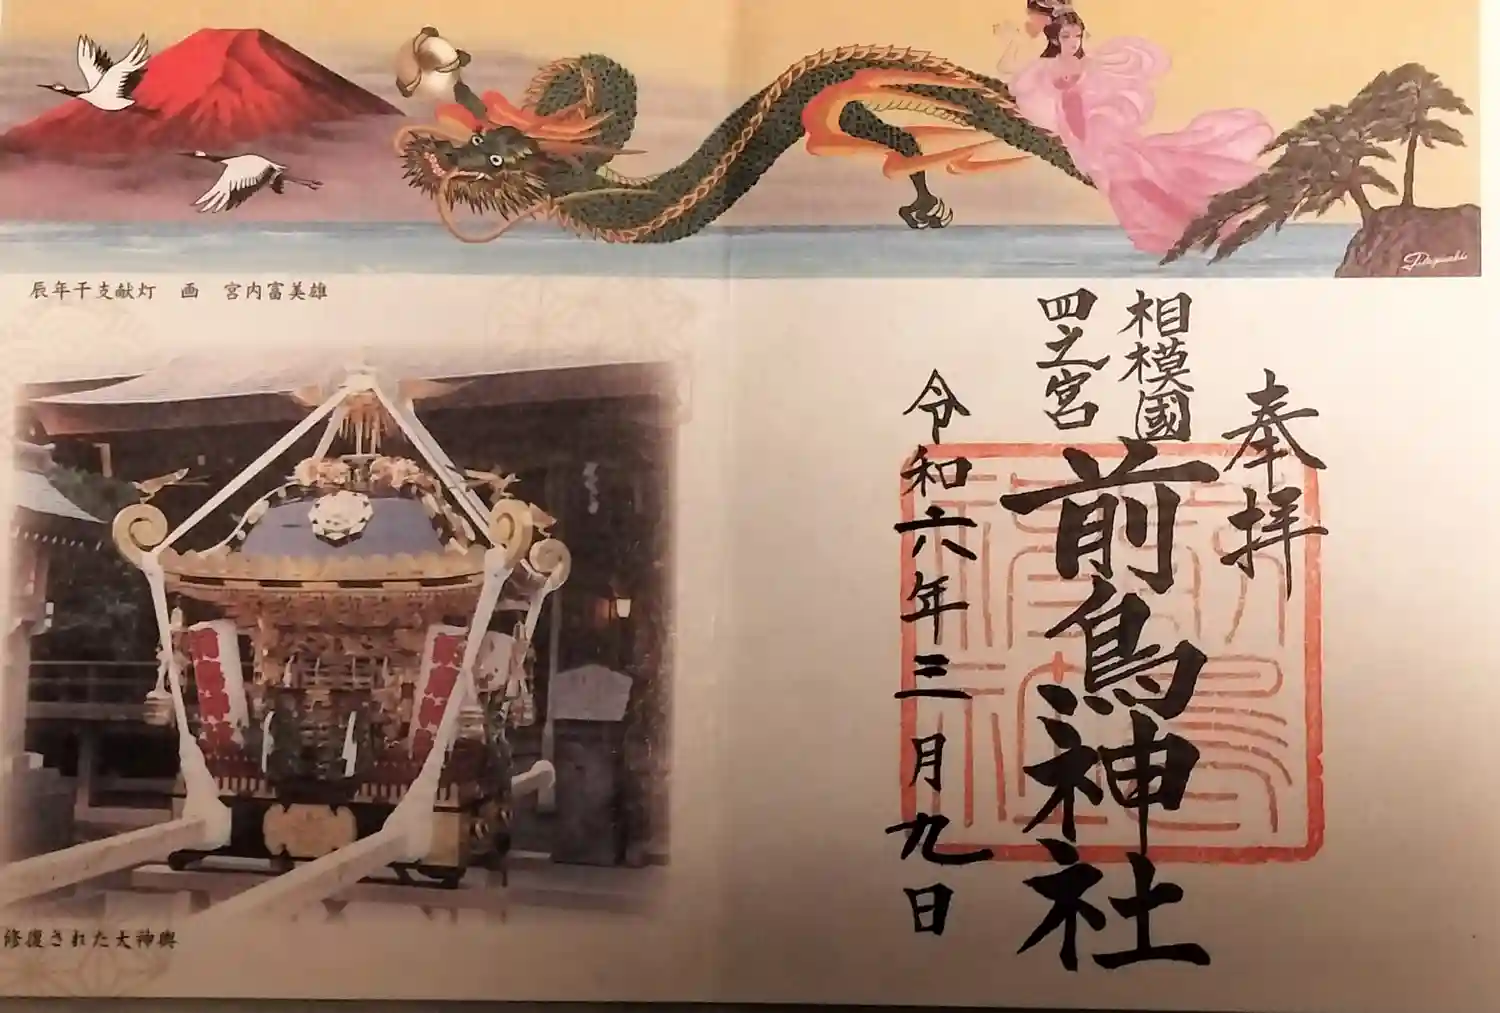 辰年干支献灯　画　宮内富美雄
奉拝
相模國
四之宮
前鳥神社
令和六年三月九日
修復された大神輿